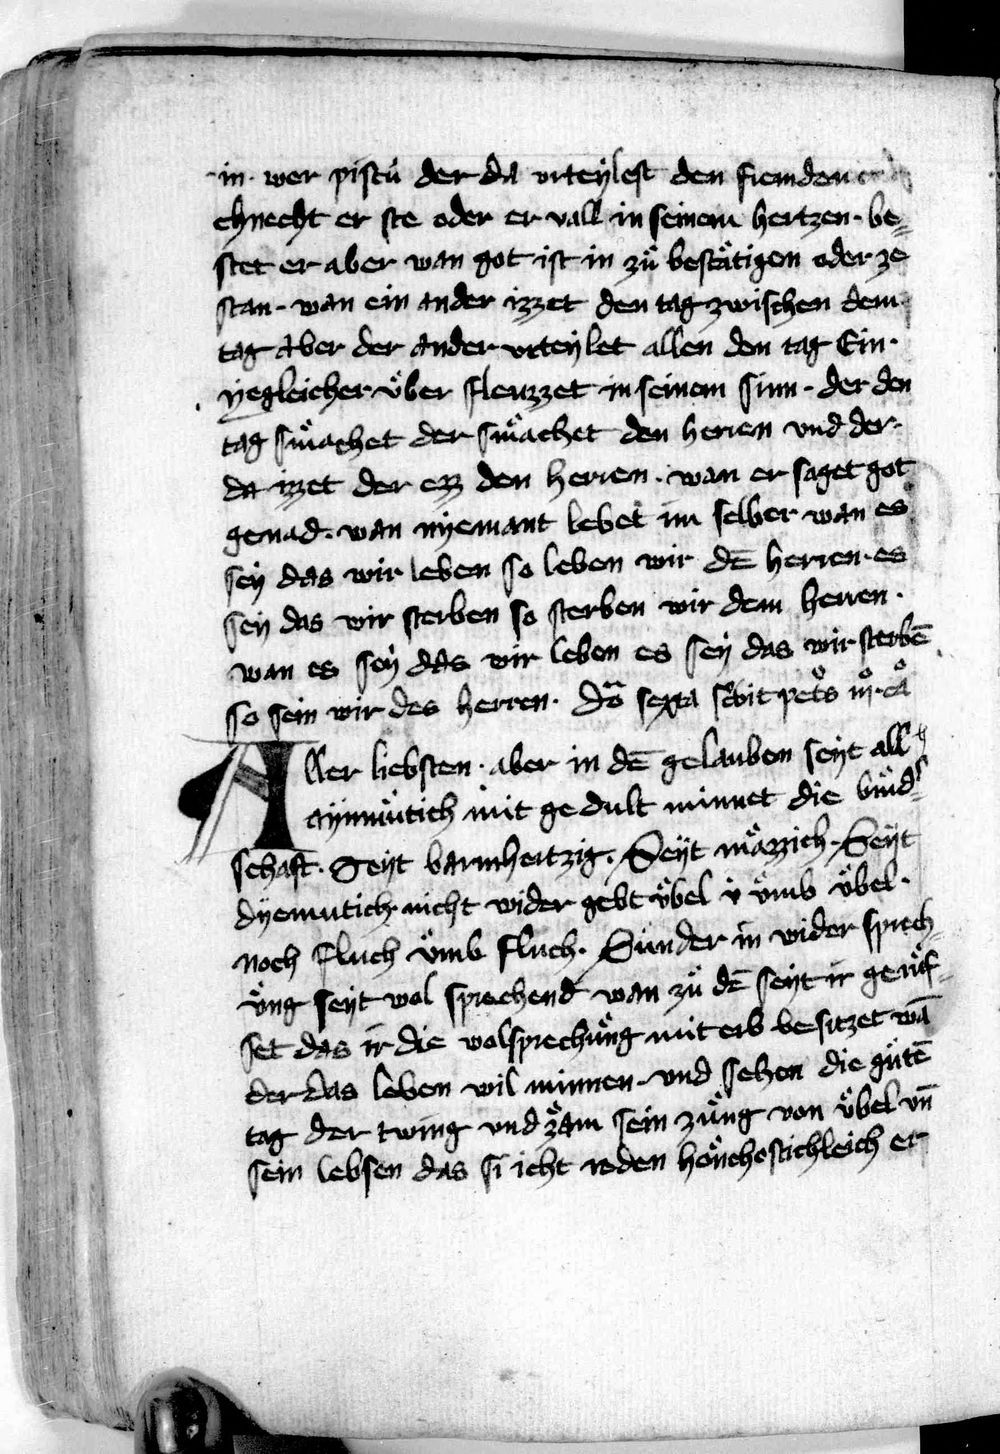 in · wer pistu der da vrteylest den fremden
chnecht er ste oder er vall in seinem hertzen · be⸗
stet er aber wan got ist in zuͤ bestaͤtigen oder ze
stan · wan ein ander izzet den tag zwischen dem
tag Aber der ander vrteylet allen den tag Ein ·
yegleicher uͤber fleuzzet in seinem sinn · der den
tag smaͤchet der smaͤchet den herren vnd der ·
da izzet der ezz den herren · wan er saget got
genad · wan nyemant lebet im selber wan es
sey das wir leben so leben wir dē herren · es
sey das wir sterben so sterben wir dem herren ·
wan es sey das wir leben es sey das wir sterbē
so sein wir des herren · dō sexta scbit
Aller liebsten · aber in dē gelauben seyt all
aynmuͤtich mit gedult minnet die bruͤd⸗
schaft · Seyt barmhertzig · Seyt maͤzzich · Seyt
dyemutich nicht wider gebt uͤbel uͤmb uͤbel ·
noch fluch uͤmb fluch · Sunder in wider sprech⸗
uͤng seyt wol sprechend wan zuͤ dē seyt ir geruͤf⸗
set das ir die wolsprechuͤng mit erb besitzet wā
der das leben wil minnen · vnd sehen die gutē
tag der twing vnd zaͤm sein zuͤng von uͤbel vn̄
sein lebsen das si icht reden hoͤnchostichleich er